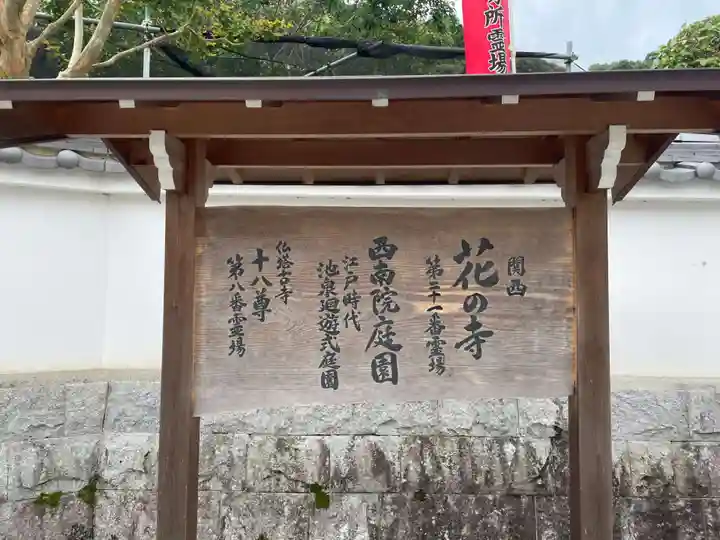 所霊場
関西
花の寺
第二十一番霊場
西南院庭園
江戸時代
池泉廻遊式庭園
仏塔古寺
十八尊
第八番霊場